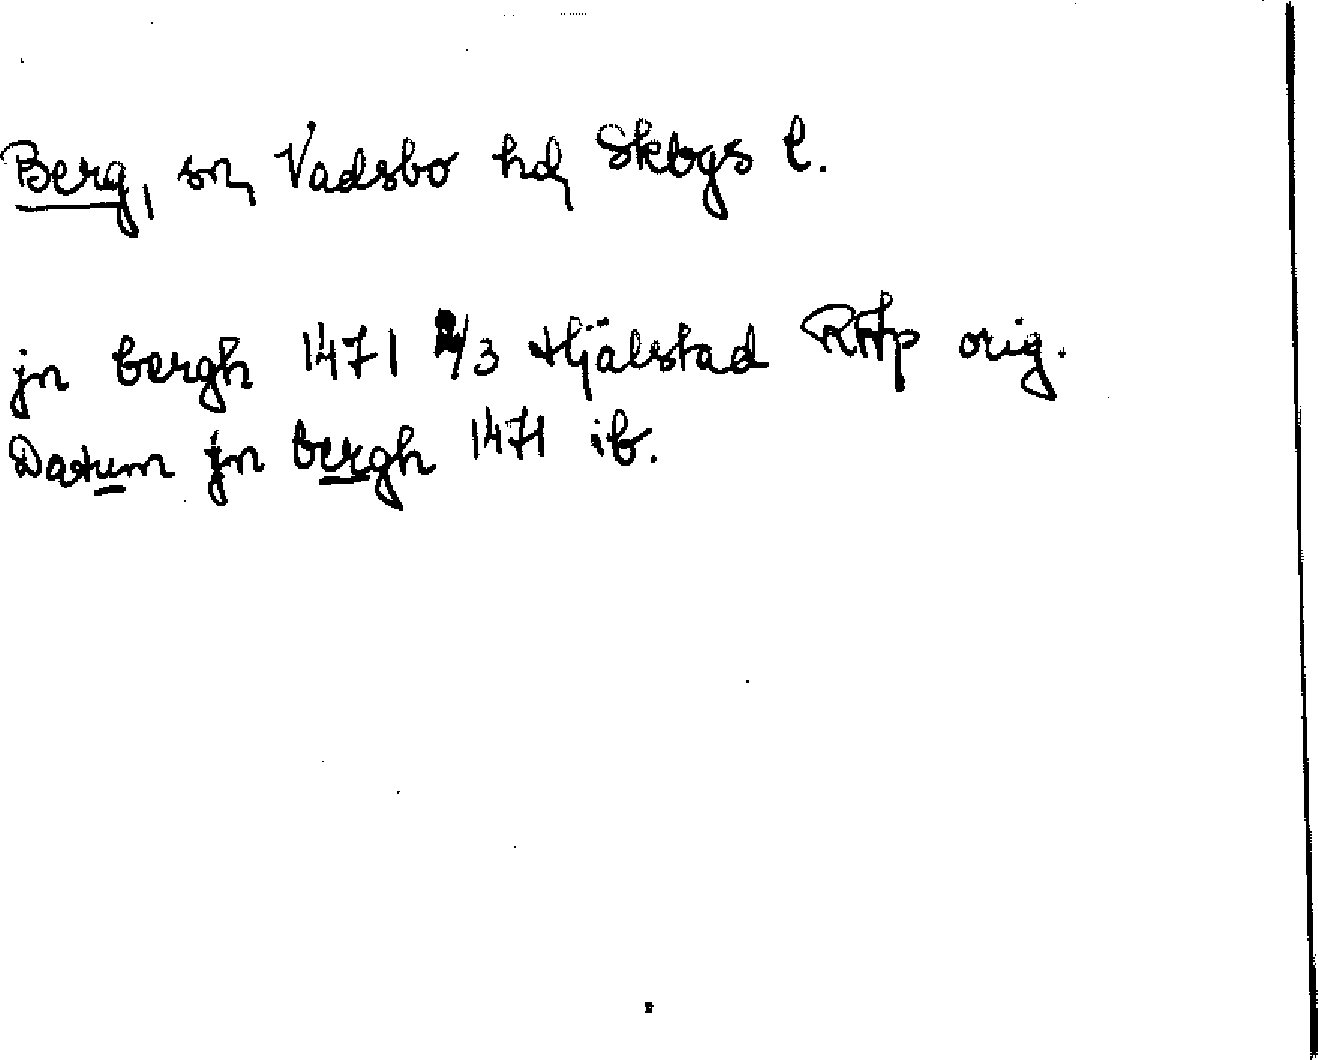 Berg, sn, Vadsbo hd, Skogs C.
jn bergh 1471 4/3 Hjälstad RAp orig.
Datum jn bergh 1471 ib.